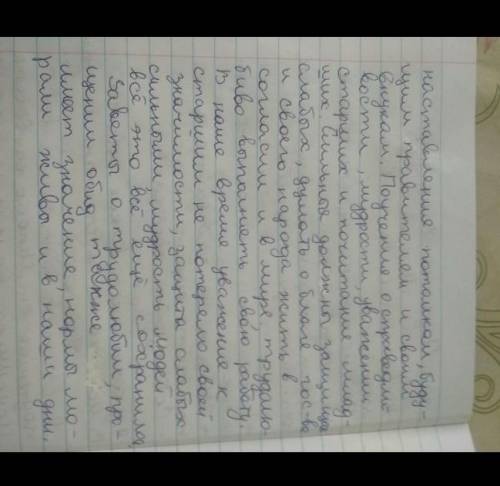 наставление потомкам, буду-
щим правителем и своим
внукам. Поучение о справедли-
вости, мудрости, уважении
старших и почитание млад-
ших. Сильные должны защища
слабых, думать о благе гос-ва
и своего народа жить в
согласии и в мире, трудолю-
биво выполнять свою работу.
В наше время уважение к
старшим не потеряло своей
значимости, защита слабых
сильными, мудрость людей
всё это всё ещё сохранила,
Заветы о трудолюбии, про-
щении обид также
имеет значение, нормы мо-
рали живы и в наши дни.